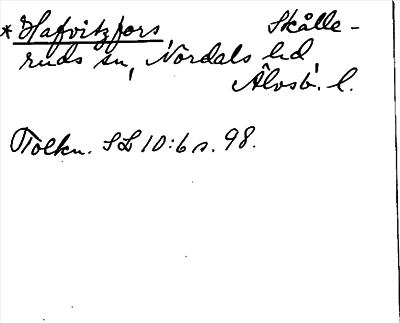 *Hafvitzfors, Skålle-
ruds sn, Nordals hd,
Älvsb. l.
Tolkn. SL 10:6 s. 98.